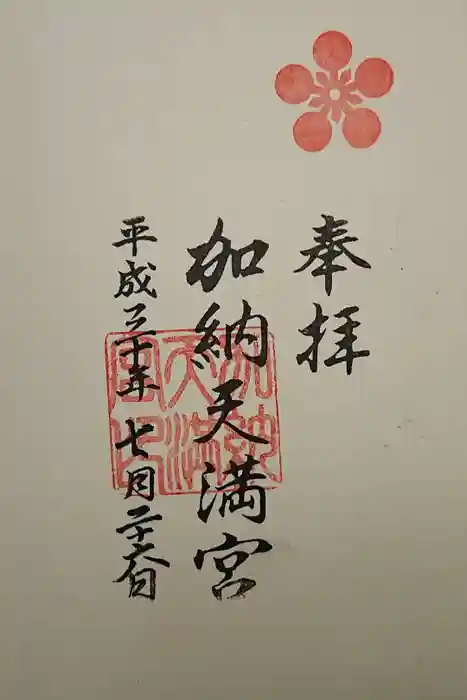 奉拝
加納天満宮
平成三十年七月二十六日
加納天満宮印